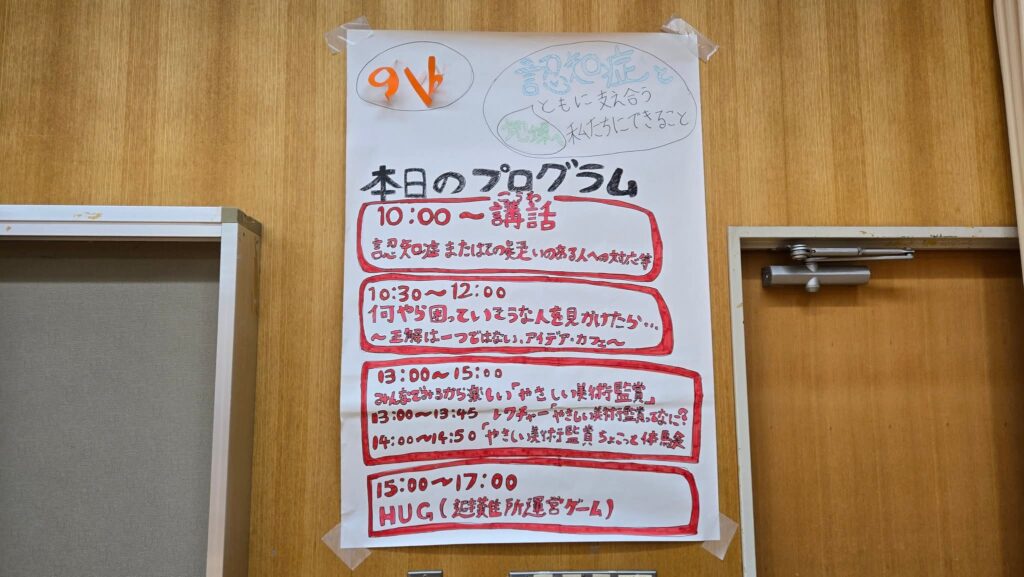 認知症と
ともに支え合う
私たちにできること
本日のプログラム
こうわ
10:00～講話
認知症またはその疑いのある人への対応等
10:30～12:00
何やら困っていそうな人を見かけたら…
～正解は一つではない、アイデア・カフェ～
13:00～15:00
みんなでみるから楽しい「やさしい美術鑑賞」
13:00～13:45 レクチャー「やさしい美術鑑賞ってなに?
14:00～14:50「やさしい美術鑑賞ちょこっと体験
15:00～17:00
HUG(避難所運営ゲーム)